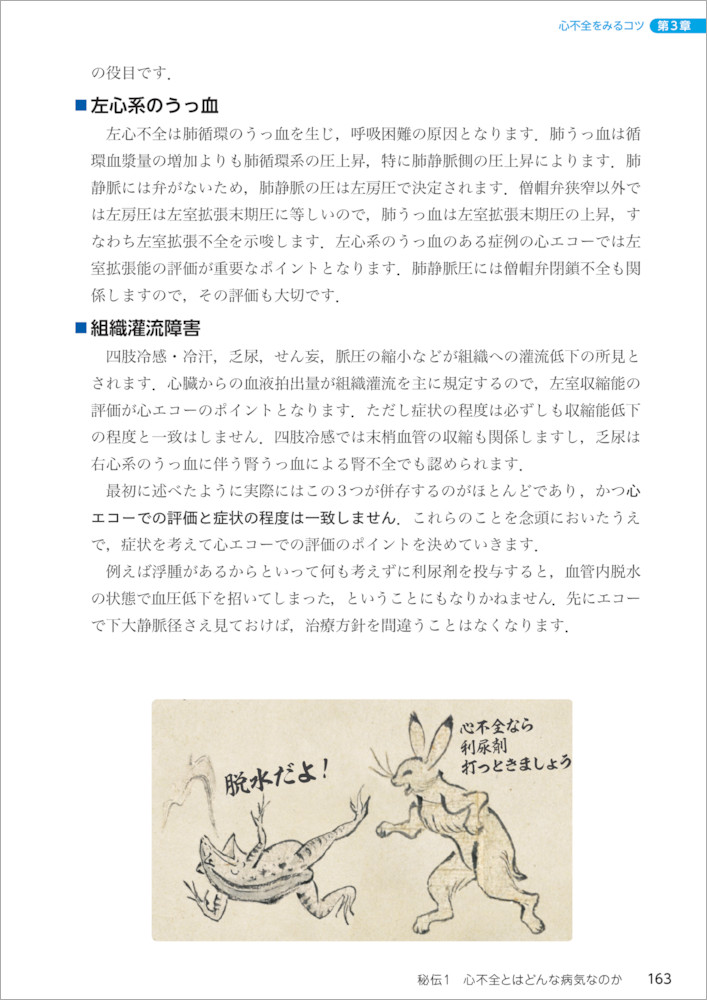 心不全をみるコツ 第3章
の役目です．
■左心系のうっ血
左心不全は肺循環のうっ血を生じ，呼吸困難の原因となります．肺うっ血は循
環血漿量の増加よりも肺循環系の圧上昇，特に肺静脈側の圧上昇によります．肺
静脈には弁がないため，肺静脈の圧は左房圧で決定されます．僧帽弁狭窄以外で
は左房圧は左室拡張末期圧に等しいので，肺うっ血は左室拡張末期圧の上昇，す
なわち左室拡張不全を示唆します．左心系のうっ血のある症例の心エコーでは左
室拡張能の評価が重要なポイントとなります．肺静脈圧には僧帽弁閉鎖不全も関
係しますので，その評価も大切です．
■組織灌流障害
四肢冷感・冷汗，乏尿，せん妄，脈圧の縮小などが組織への灌流低下の所見と
されます．心臓からの血液拍出量が組織灌流を主に規定するので，左室収縮能の
評価が心エコーのポイントとなります．ただし症状の程度は必ずしも収縮能低下
の程度と一致はしません．四肢冷感では末梢血管の収縮も関係しますし，乏尿は
右心系のうっ血に伴う腎うっ血による腎不全でも認められます．
最初に述べたように実際にはこの3つが併存するのがほとんどであり，かつ心
エコーでの評価と症状の程度は一致しません．これらのことを念頭においたうえ
で，症状を考えて心エコーでの評価のポイントを決めていきます．
例えば浮腫があるからといって何も考えずに利尿剤を投与すると，血管内脱水
の状態で血圧低下を招いてしまった，ということにもなりかねません．先にエコー
で下大静脈径さえ見ておけば，治療方針を間違うことはなくなります．
心不全なら
利尿剤
打っときましょう
脱水だよ！
秘伝1 心不全とはどんな病気なのか 163